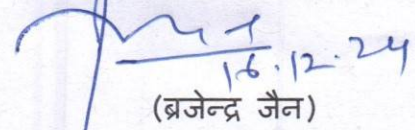 16.12.24
(ब्रजेन्द्र जैन)